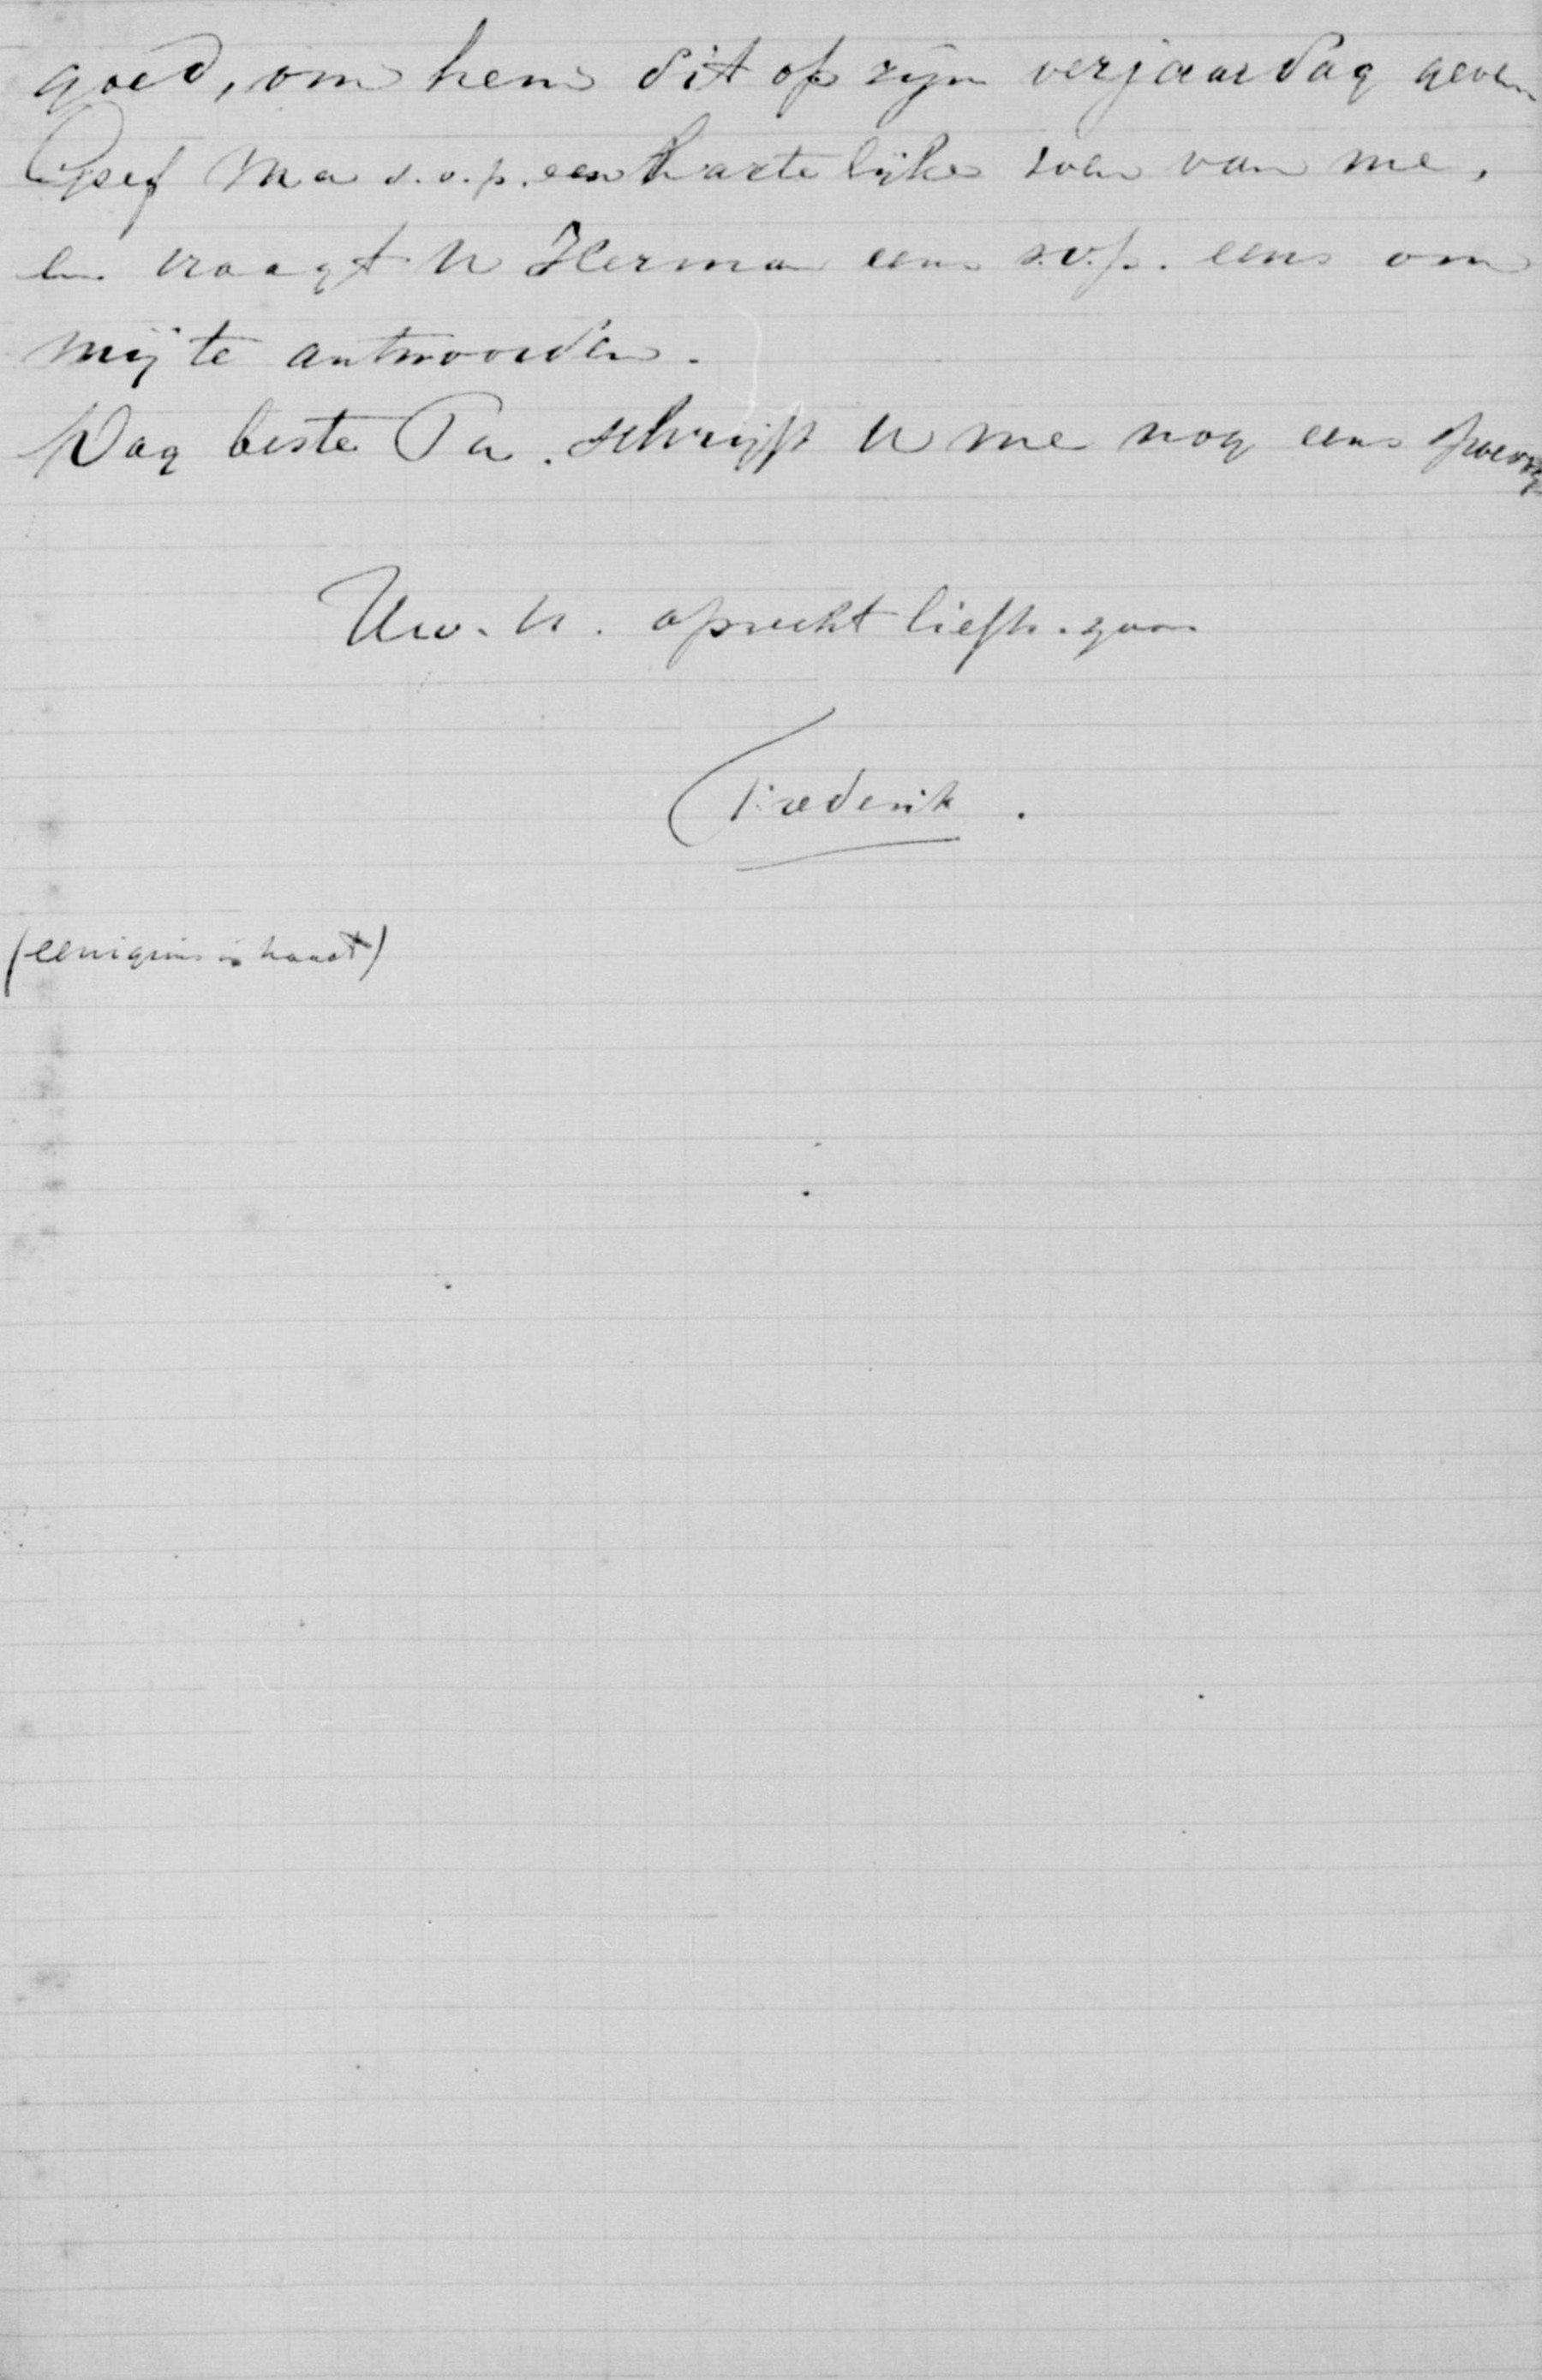 goed, om hem dit op zijn verjaardag geven
Geef Ma s.v.p. een hartelijke zoen van me,
en vraagt U Herman eens s.v.p. eens om
mij te antwoorden.
Dag beste Pa. schrijft U me nog eens spoedig
Uw. U. oprecht liefh. zoon
Frederik.
(eenigzins in haast)